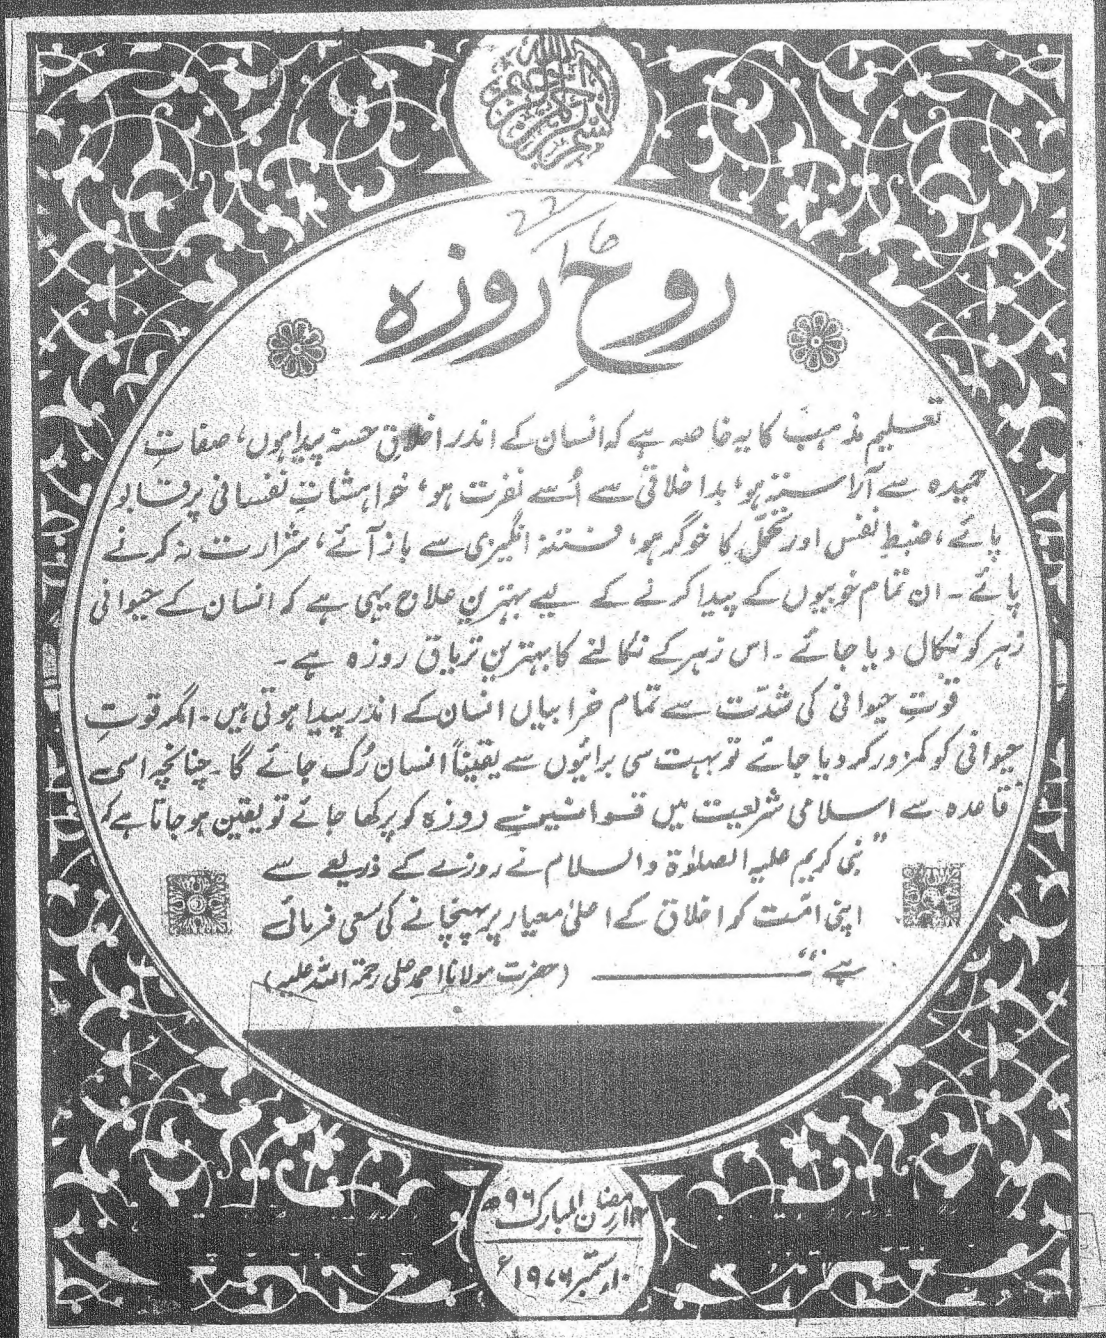 بسم الله الرحمن الرحيم
روحِ روزہ
تعلیم مذہب کا یہ خاصہ ہے کہ انسان کے اندر اخلاقِ حسنہ پیدا ہوں، صفاتِ
حمیدہ سے آراستہ ہو، بداخلاقی سے اُسے نفرت ہو، خواہشاتِ نفسانی پر قابو
پائے، ضبطِ نفس اور تحمّل کا خوگر ہو، فتنہ انگیزی سے باز آئے، شرارت نہ کرنے
پائے۔ ان تمام خوبیوں کے پیدا کرنے کے لیے بہترین علاج یہی ہے کہ انسان کے حیوانی
زہر کو نکال دیا جائے۔ اس زہر کے نکالنے کا بہترین تریاق روزہ ہے۔
قوّتِ حیوانی کی شدّت سے تمام خرابیاں انسان کے اندر پیدا ہوتی ہیں۔ اگر قوتِ
حیوانی کو کمزور کر دیا جائے تو بہت سی برائیوں سے یقیناً انسان رُک جائے گا۔ چنانچہ اسی
قاعدہ سے اسلامی شریعت میں قوانینِ روزہ کو پرکھا جائے تو یقین ہو جاتا ہے کہ
”نبی کریم علیہ الصلوٰۃ والسلام نے روزے کے ذریعے سے
اپنی امّت کو اخلاق کے اعلیٰ معیار پر پہنچانے کی سعی فرمائی
ہے“ ــــــــ (حضرت مولانا احمد علی رحمۃ اللہ علیہ)
رمضان المبارک ۹۶ھ
۱۰ ستمبر ۱۹۷۶ء